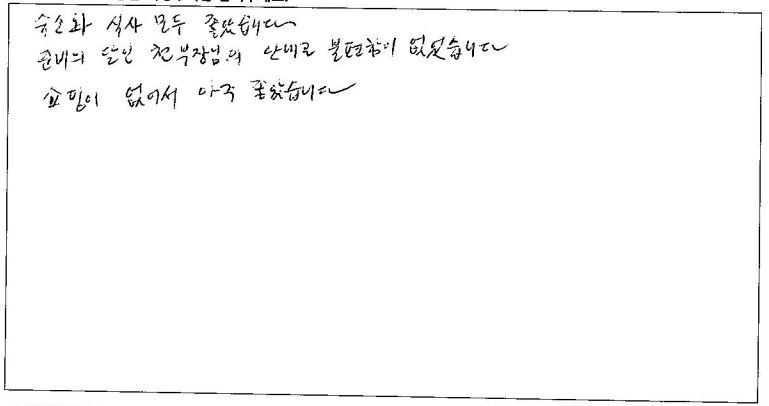 숙소와 식사 모두 좋았습니다
준비의 달인 천부장님의 안내로 불편함이 없었습니다
쇼핑이 없어서 아주 좋았습니다